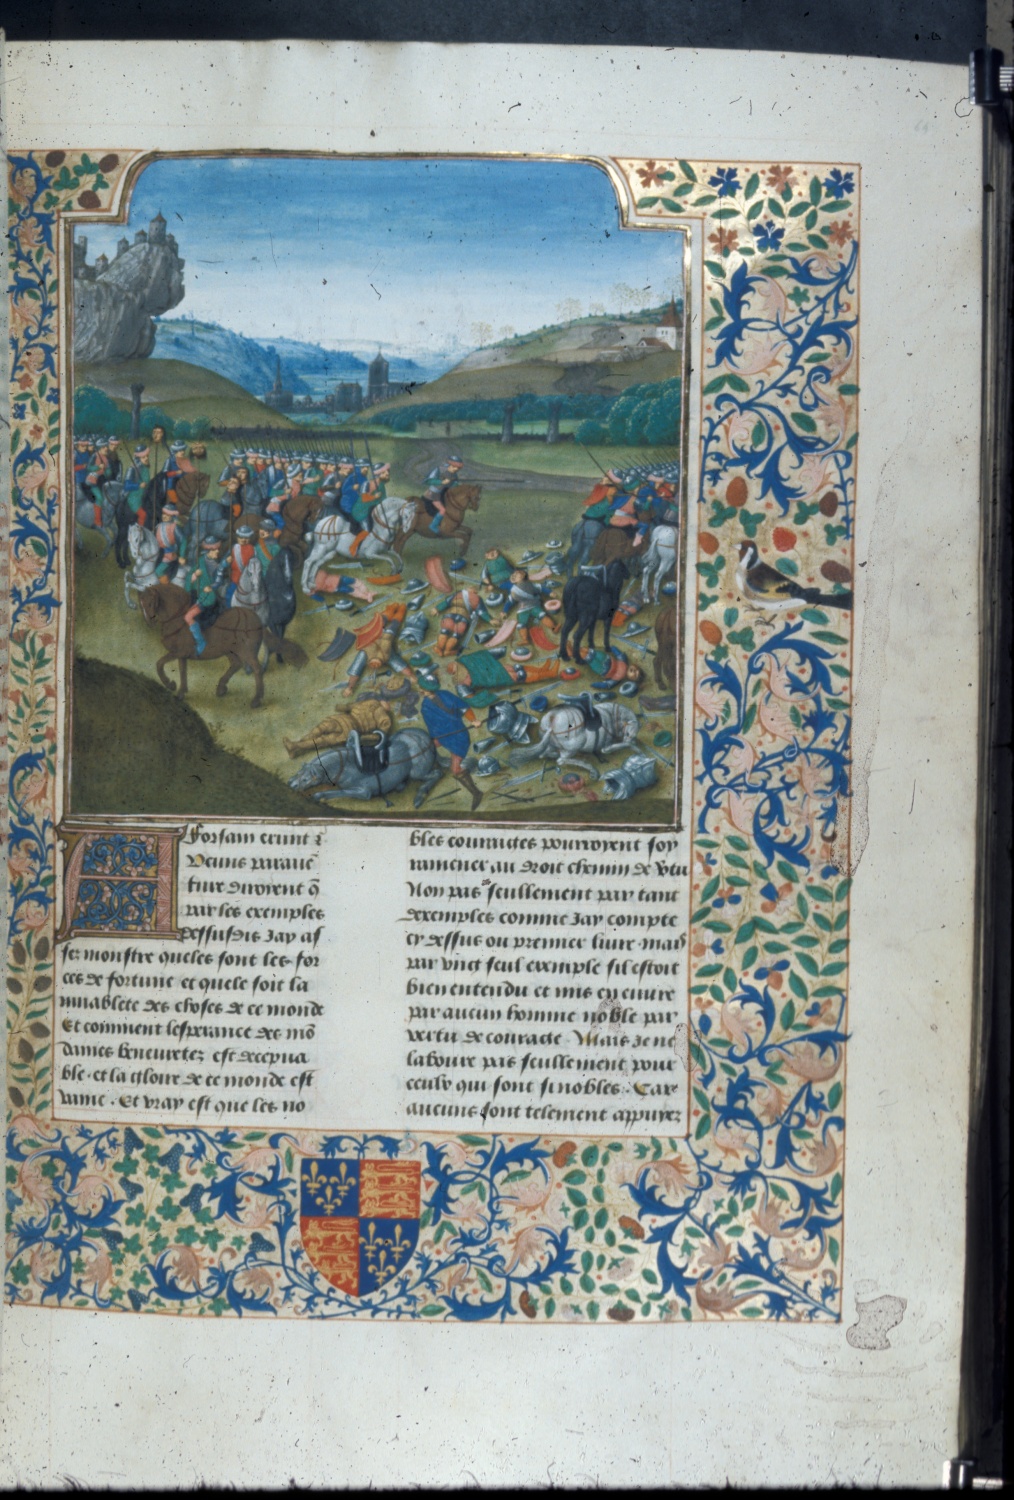 A Forsam erunt ⁊
Aucuns parauē
ture diroient q̄
par les exemples
dessusdis Jay as
sez monstre queles sont les for
ces de fortune et quele soit la
muablete des choses de ce monde
Et comment lesperance des mō
daines beneuretez est decepua
ble · et la gloire de ce monde est
vaine · Et vray est que les no
bles couraiges pourroyent soy
ramener au droit chemin de v̄tu
Non pas seullement par tant
dexemples comme Jay compte
cy dessus ou premier liure mais
par vng seul exemple sil estoit
bien entendu et mis en euure
par aucun homme noble par
vertu de couraige Mais Je ne
laboure pas seullement pour
ceulx qui sont si nobles · Car
aucuns sont telement appuyez